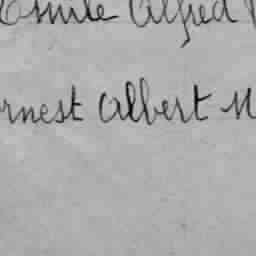 Emile Alfred
Ernest Albert